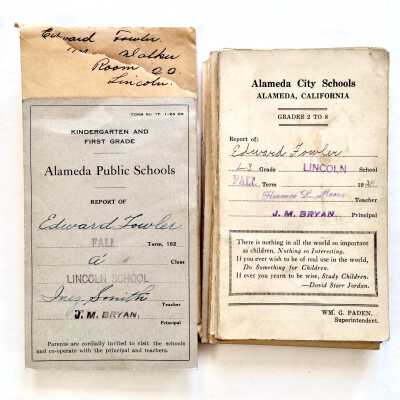 Edward Fowler
Walker
Room
Lincoln.
KINDERGARTEN AND
FIRST GRADE
Alameda Public Schools
REPORT OF
Edward Fowler
FALL Term, 192
a Class
LINCOLN SCHOOL
Inez Smith Teacher
J. M. BRYAN. Principal
Parents are cordially invited to visit the schools
and co-operate with the principal and teachers.
Alameda City Schools
ALAMEDA, CALIFORNIA
GRADES 2 TO 8
Report of:
Edward Fowler
L3 Grade LINCOLN School
FALL Term 19
Teacher
J. M. BRYAN Principal
There is nothing in all the world so important
as children, Nothing so Interesting.
If you ever wish to be of real use in the world,
Do Something for Children.
If ever you yearn to be wise, Study Children.
—David Starr Jordan.
WM. G. PADEN,
Superintendent.